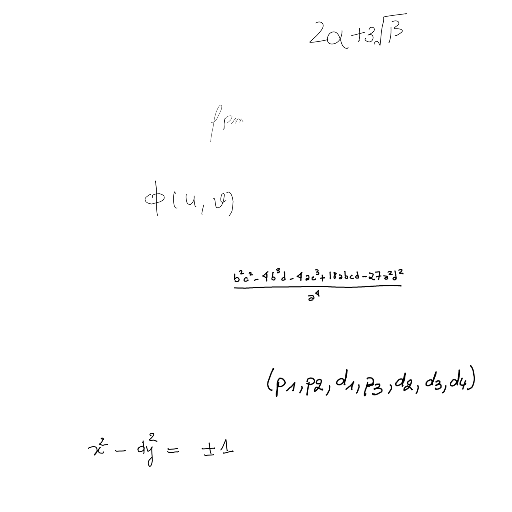 2α+3√β
ϕ(u,v)
(b²c²-4b³d-4ac³+18abcd-27a²d²)/a⁴
(p1,p2,d1,p3,d2,d3,d4)
x²-dy²=±1